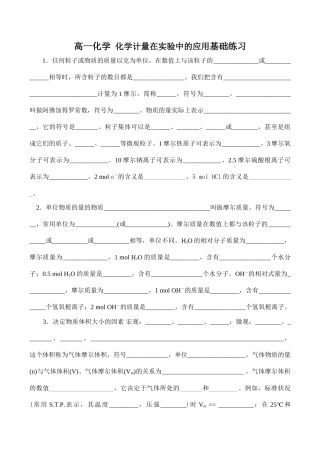 高一化学 化学计量在实验中的应用基础练习
1．任何粒子或物质的质量以克为单位，在数值上与该粒子的________________或______
________相等时，所含粒子的数目都是________________，我们把含有________________
________________计量为 1 摩尔，简称______，符号为______，________________________
叫做阿佛加得罗常数，符号为______。物质的量实际上表示______________________________
______，它的符号为______。粒子集体可以是________、________或________，甚至是组
成它们的质子、______、______等微观粒子。1 摩尔铁原子可表示为________、3 摩尔氧
分子可表示为________、10 摩尔钠离子可表示为________、2.5 摩尔硫酸根离子可表示
为________，2 mol e⁻的含义是____________、5 mol HCl 的含义是____________
_。
2．单位物质的量的物质______________________叫做摩尔质量。符号为___
____，常用单位为________(或________)。摩尔质量在数值上都与该粒子的______
________或________或________相等，单位不同。1 mol H₂O 的质量是________，
摩尔质量为________，1 mol H₂O 的质量是________，含有________________个水分
子；0.5 mol H₂O 的质量是________，含有________________个水分子。OH⁻的相对式量为
________，摩尔质量为________，1 mol OH⁻的质量是________，含有________________
个氢氧根离子；2 mol OH⁻的质量是________，含有________________个氢氧根离子。
3．决定物质体积大小的因素 宏观：______、______、______；微观：______、_
______、______。________________________________________________，
这个体积称为气体摩尔体积，符号________，单位________________，气体物质的量
(n)与气体体积(V)、气体摩尔体积(Vₘ)之间的关系为________________________。气体摩尔体积
的数值________________，它决定于气体所处的______和______。例如，标准状况
(常用 S.T.P.表示，其温度______，压强______)时 Vₘ == ________；在 25℃和